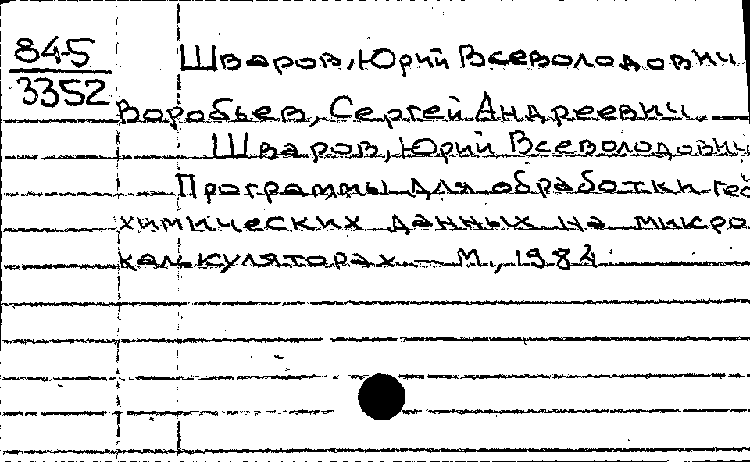 84-5
3352
Шваров, Юрий Всеволодович
Воробьев, Сергей Андреевич,
Шваров, Юрий Всеволодович
Программы для обработки гео
химических данных на микро
калькуляторах. – М., 1984